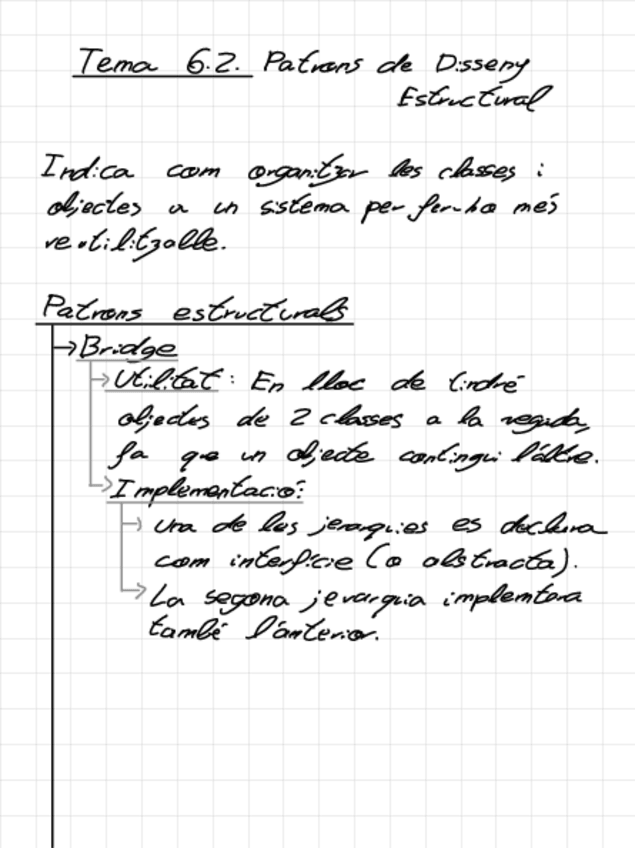 Tema 6.2. Patrons de Disseny
Estructural
Indica com organitzar les classes i
objectes a un sistema per fer-ho més
reutilitzable.
Patrons estructurals
→ Bridge
→ Utilitat: En lloc de tindré
objectes de 2 classes a la vegada,
fa que un objecte contingui l'altre.
→ Implementació:
→ una de les jerarquies es declara
com interfície (o abstracta).
→ La segona jerarquia implemtara
també l'anterior.